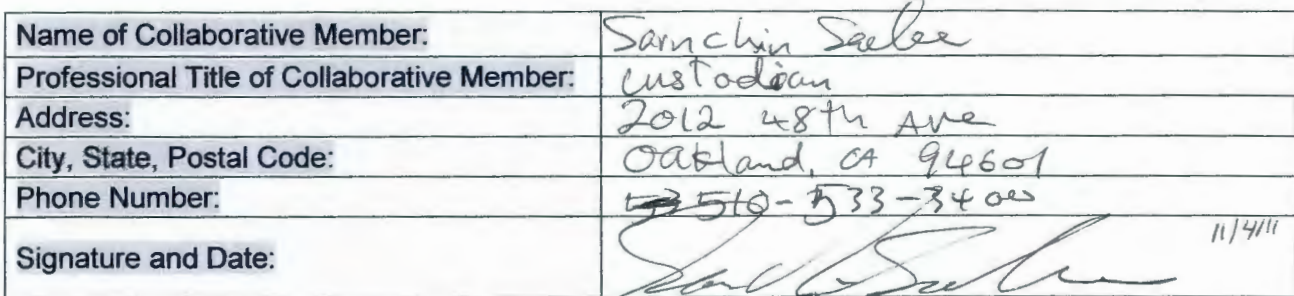 Name of Collaborative Member: Sarnchin Saelee
Professional Title of Collaborative Member: custodian
Address: 2012 48th Ave
City, State, Postal Code: Oakland, CA 94601
Phone Number: 510-533-3400
Signature and Date: 11/4/11